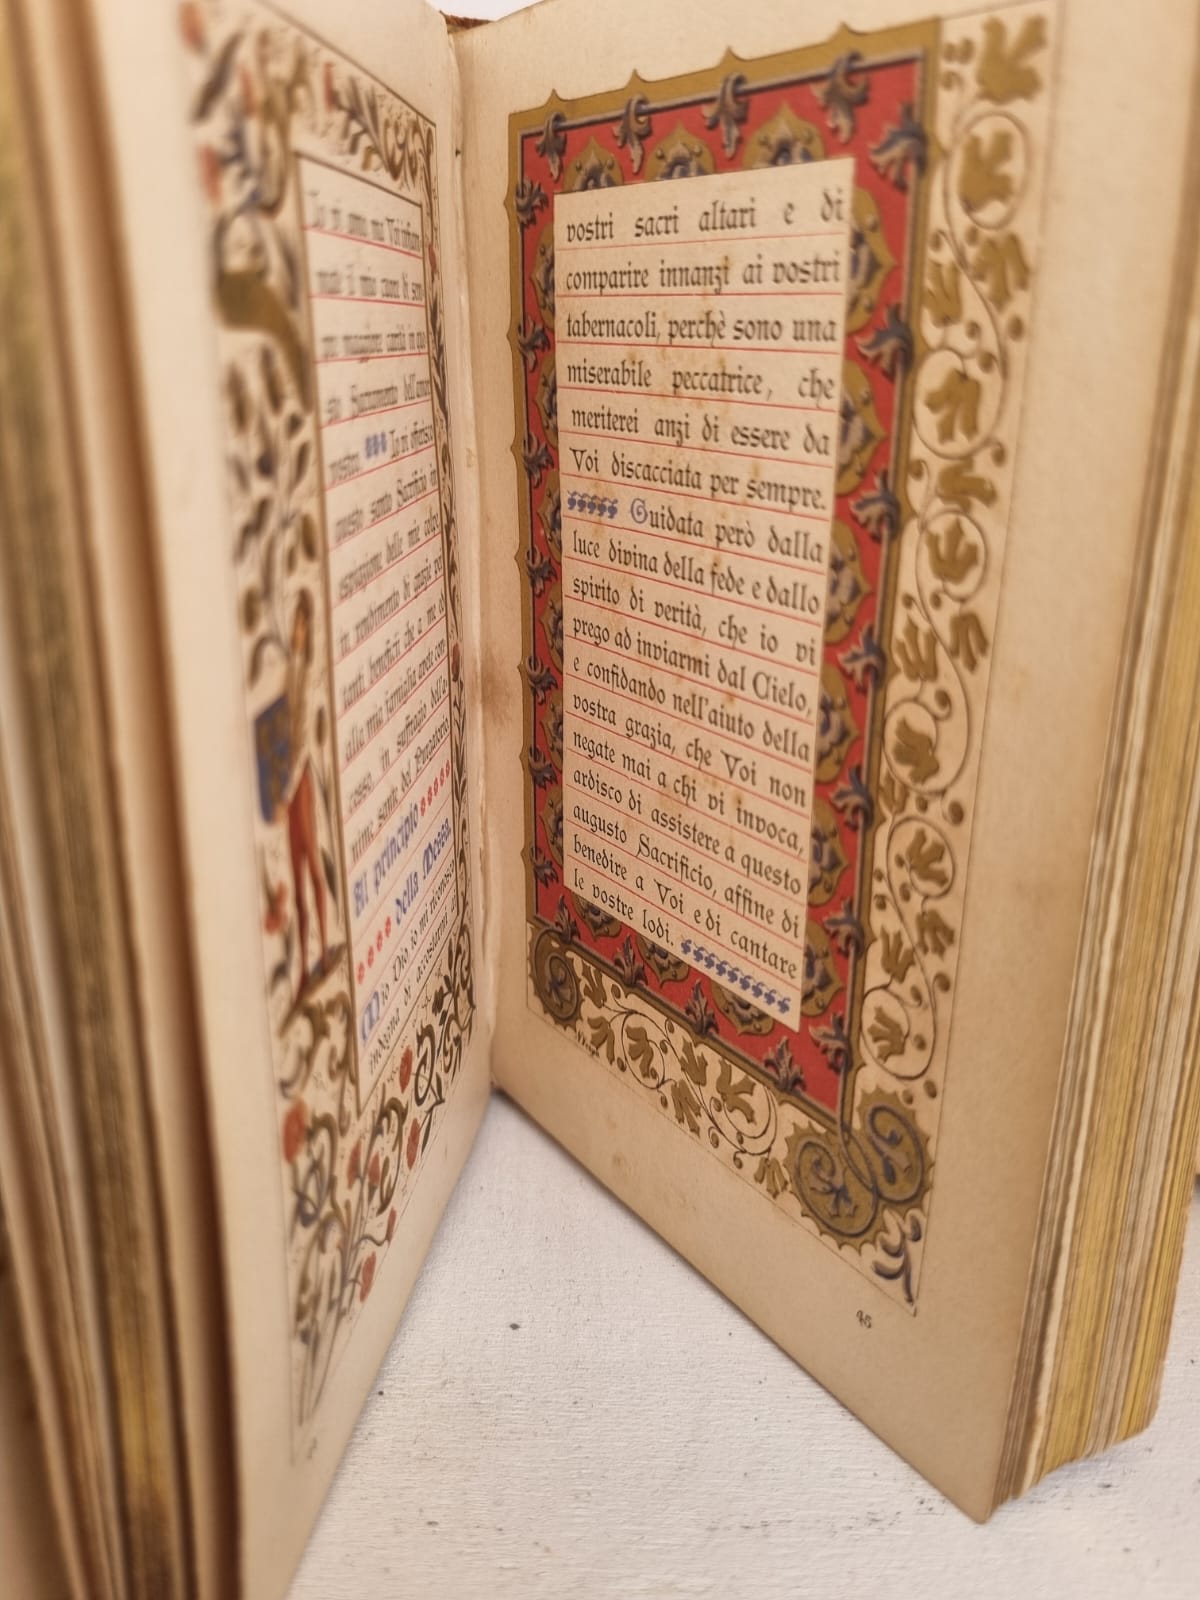 Io vi amo, ma Voi infiam
mate il mio cuore di sem
pre maggiore carità in que
sto Sacramento dell'amor
vostro. Io vi offerisco
questo santo Sacrificio in
espiazione delle mie colpe,
in rendimento di grazie pei
tanti beneficii che a me ed
alla mia famiglia avete con
cesso, in suffragio dell'a
nime sante del Purgatorio.
Al principio
della Messa.
Mio Dio, io mi riconosco
indegna di accostarmi ai
vostri sacri altari e di
comparire innanzi ai vostri
tabernacoli, perchè sono una
miserabile peccatrice, che
meriterei anzi di essere da
Voi discacciata per sempre.
Guidata però dalla
luce divina della fede e dallo
spirito di verità, che io vi
prego ad inviarmi dal Cielo,
e confidando nell'aiuto della
vostra grazia, che Voi non
negate mai a chi vi invoca,
ardisco di assistere a questo
augusto Sacrificio, affine di
benedire a Voi e di cantare
le vostre lodi.
45